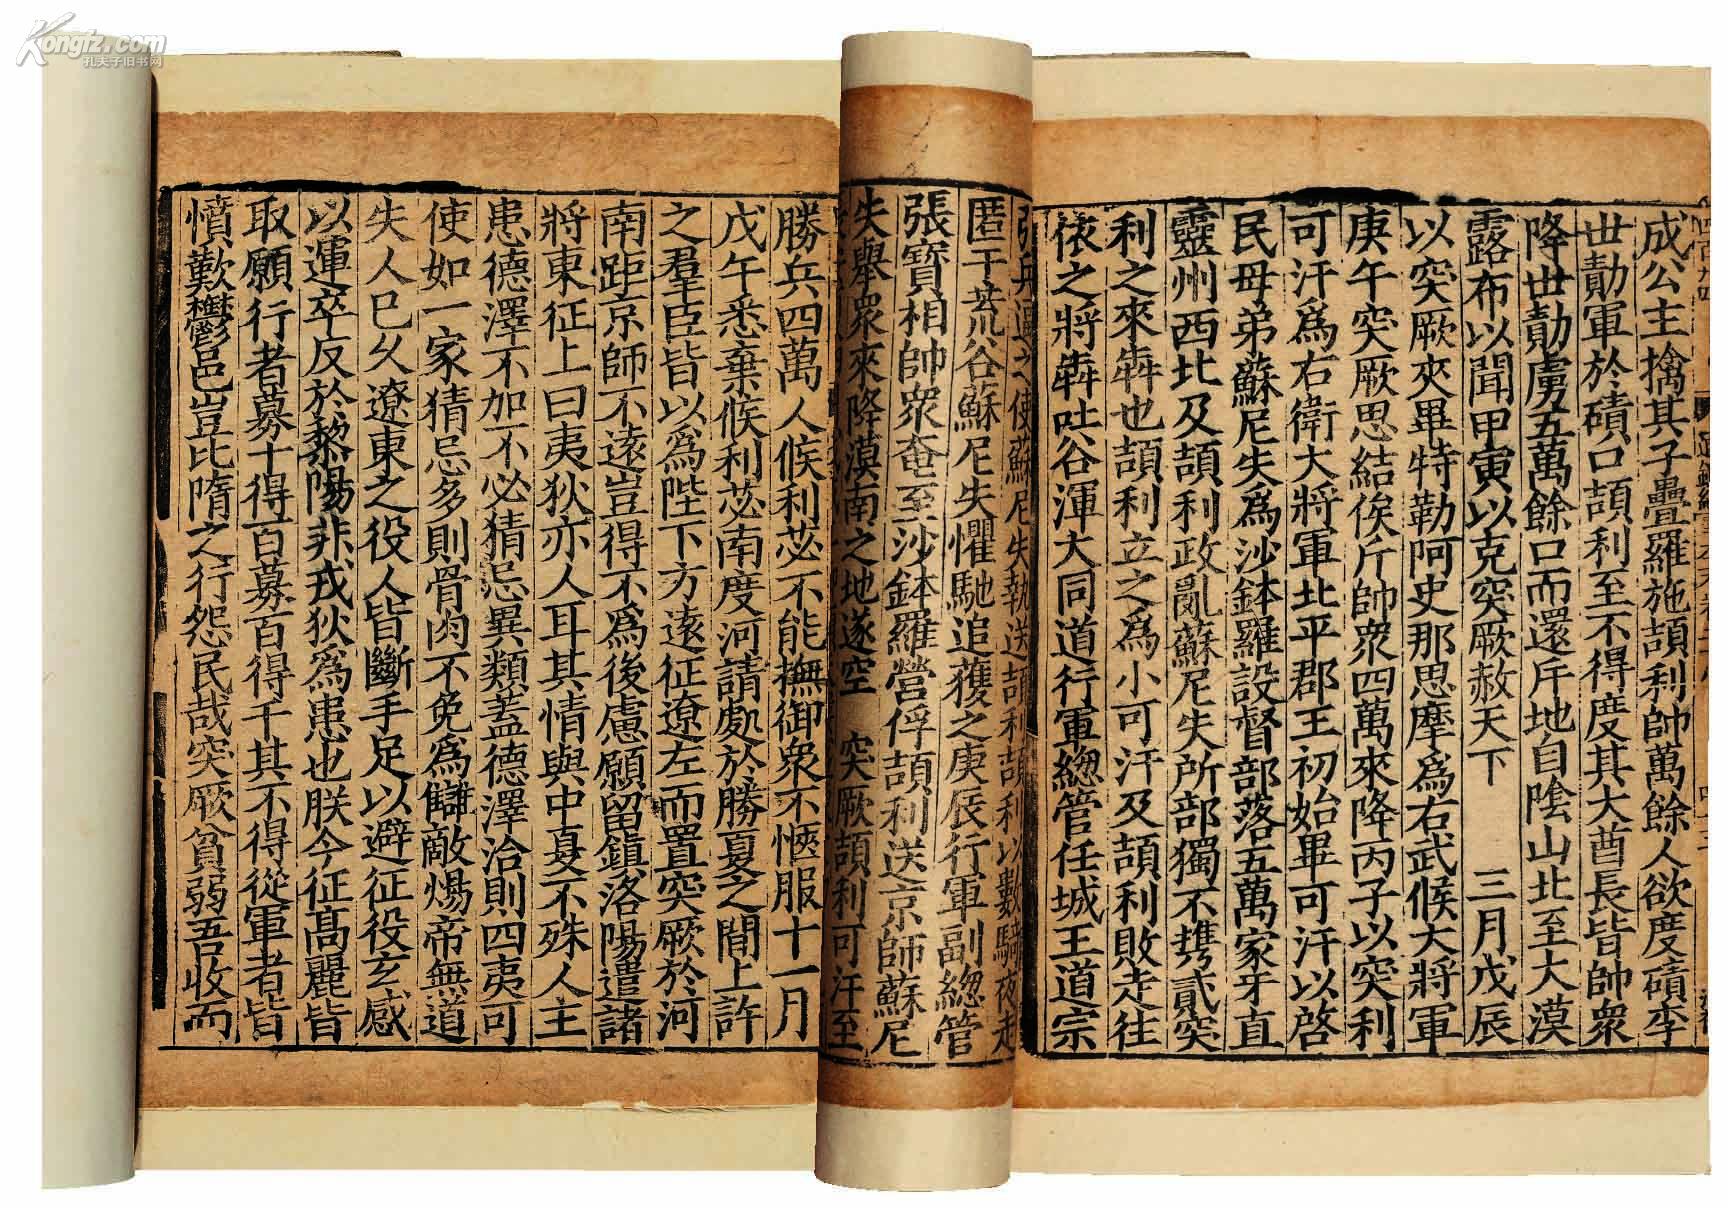 Kongfz.com
孔夫子旧书网
成公主擒其子疊羅施頡利帥萬餘人欲度磧李
世勣軍於磧口頡利至不得度其大酋長皆帥衆
降世勣虜五萬餘口而還斥地自陰山北至大漠
露布以聞甲寅以克突厥赦天下 三月戊辰
以突厥夾畢特勒阿史那思摩爲右武候大將軍
庚午突厥思結俟斤帥衆四萬來降丙子以突利
可汗爲右衛大將軍北平郡王初始畢可汗以啓
民母弟蘇尼失爲沙鉢羅設督部落五萬家牙直
靈州西北及頡利政亂蘇尼失所部獨不攜貳突
利之來奔也頡利立之爲小可汗及頡利敗走往
依之將奔吐谷渾大同道行軍緫管任城王道宗
引兵逼之使蘇尼失執送頡利頡利以數騎夜走
匿于荒谷蘇尼失懼馳追獲之庚辰行軍副緫管
張寶相帥衆奄至沙鉢羅營俘頡利送京師蘇尼
失舉衆來降漠南之地遂空 突厥頡利可汗至
勝兵四萬人候利苾不能撫御衆不愜服十一月
戊午悉棄候利苾南度河請處於勝夏之間上許
之羣臣皆以爲陛下方遠征遼左而置突厥於河
南距京師不遠豈得不爲後慮願留鎮洛陽遣諸
將東征上曰夷狄亦人耳其情與中夏不殊人主
患德澤不加不必猜忌異類蓋德澤洽則四夷可
使如一家猜忌多則骨肉不免爲讎敵煬帝無道
失人已久遼東之役人皆斷手足以避征役玄感
以運卒反於黎陽非戎狄爲患也朕今征高麗皆
取願行者募十得百募百得千其不得從軍者皆
憤歎鬱邑豈比隋之行怨民哉突厥貧弱吾收而